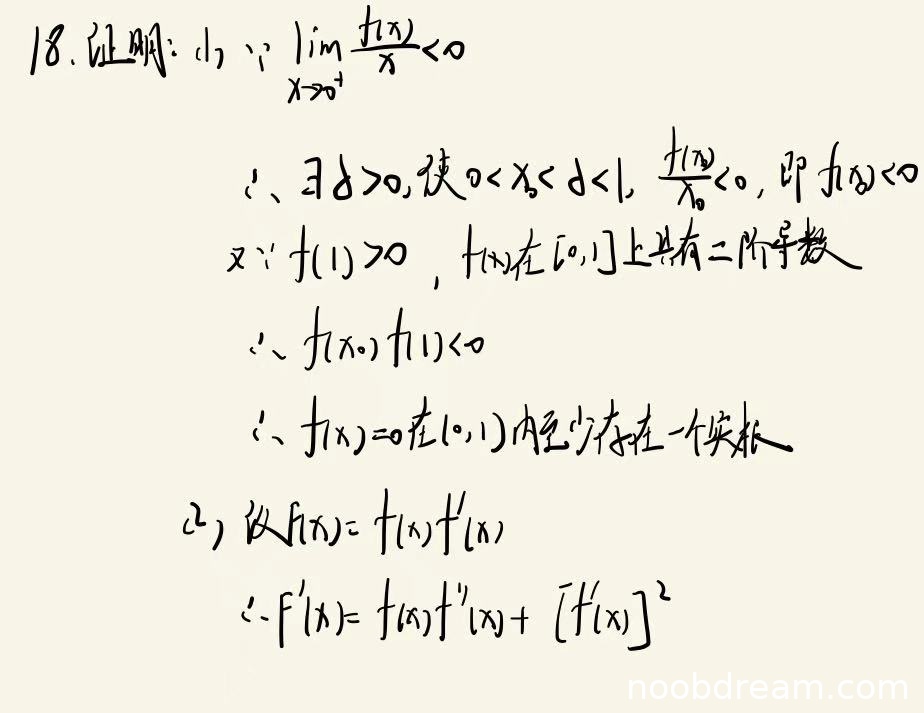 18. 证明: (1) ∵ lim_{x→0⁺} f(x)/x < 0
∴ ∃ δ>0, 使 0<x₀<δ<1, f(x₀)/x₀<0, 即 f(x₀)<0
又∵ f(1)>0, f(x)在[0,1]上具有二阶导数
∴ f(x₀)f(1)<0
∴ f(x)=0在(0,1)内至少存在一个实根
(2) 设F(x)=f(x)f'(x)
∴F'(x)=f(x)f''(x)+[f'(x)]²
noobdream.com